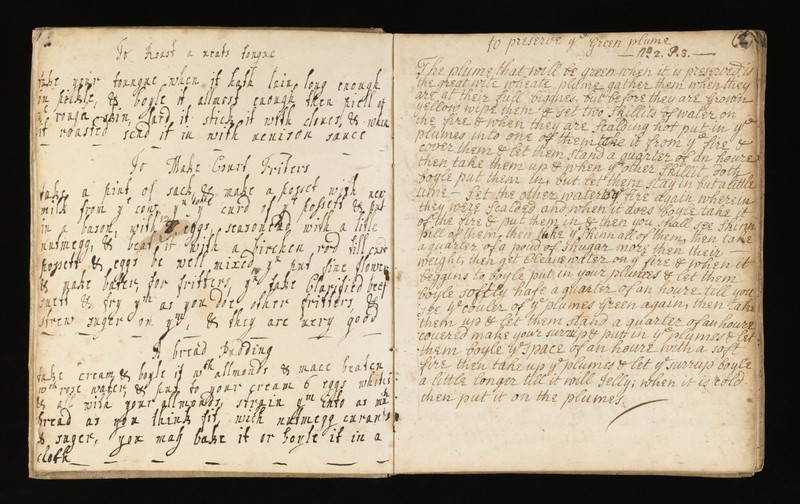 To Roast a neats tongue
take your toungue when it hath lain long enough
in pickle, & boyle it allmost enough then piell of
ye rough skin, lard it stick it with cloves, & when
it roasted send it in with venison sauce
To Make Court Friters
take a pint of sack, & make a posset with new
milk from ye cow, yn take curd of ye possett & put
in a bason, with 8 eggs, seasoned with a litle
nutmegg, & beat it with a Birchen rod till
possets & eggs be well mixed yn put fine flower
& make batter, for fritters, yn take Clarified beef
suett & fry ym as you doe other fritters, &
strew suger on ym, & they are very good
A bread Pudding
take cream & boyle it wth allmonds & mace beaten
wth rose water, & put to your cream 6 eggs whites
& all with your allmonds, strain ym into as mch
bread as you think fit, with nuttmegg curans
& suger, you may bake it or boyle it in a
cloth
to preserve ye Green plume
no. 2. P.s.
The plume that will be green when it is preserved is
the great wite wheate plume gather them when they
are at their full biggnes, but before they are grown
yellow wipe them & set two skillits of water on
the fire & when they are scalding hot put in ye
plumes into one of them take it from ye fire &
cover them & let them stand a quarter of an houre
then take them up & when ye other skillit doth
boyle put them in, but let them stay in but a little
time let the other water by ye fire again wherein
they were scalded and when it does boyle take it
of the fire & put them in & then you shall see thinn
pill of them, then take ye thinn all of them, then take
a quarter of a poud of shugar more then their
weight, then get cleane water on ye fire & when it
beggins to boyle put in your plumes & let them
boyle softly hafe a quarter of an houre till you
see ye couler of ye plumes green again, then take
them up & let them stand a quarter of an houre
covered make your surrup & put in ye plumes & let
them boyle ye space of an houre with a soft
fire then take up ye plumes & let ye surrup boyle
a little longer till it will Jelly, when it is cold
then put it on the plumes.